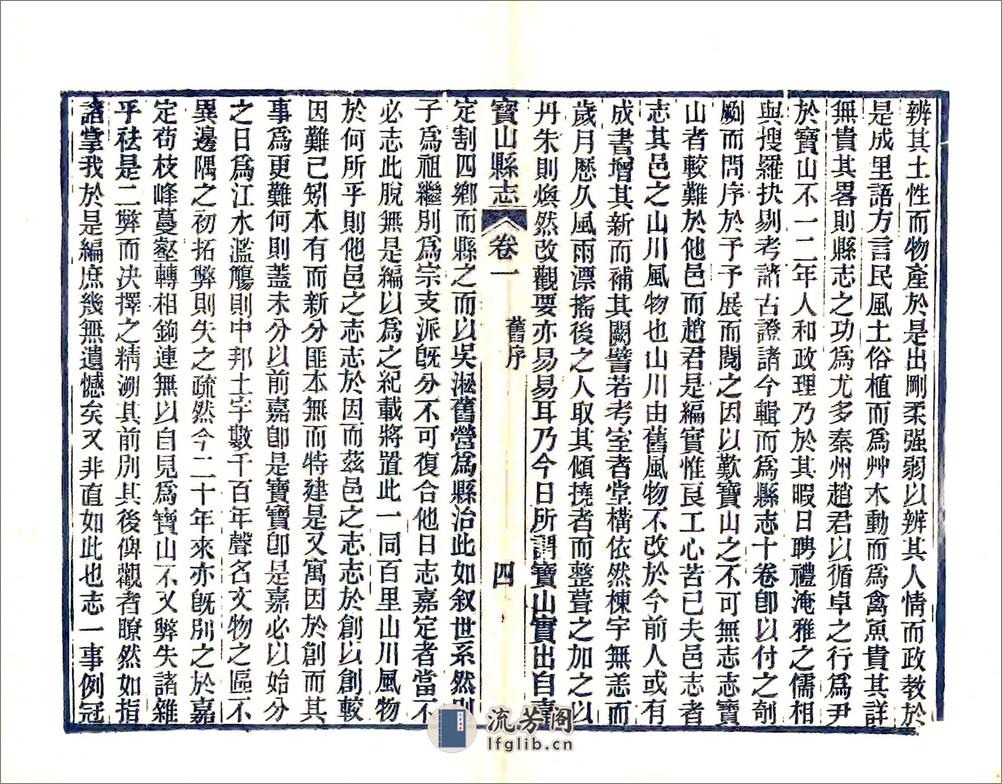 辨其土性而物產於是出剛柔强弱以辨其人情而政教於
是成里語方言民風土俗植而爲艸木動而爲禽魚貴其詳
無貴其畧則縣志之功爲尤多秦州趙君以循卓之行爲尹
於寶山不一二年人和政理乃於其暇日聘禮淹雅之儒相
與搜羅抉剔考諸古證諸今輯而爲縣志十卷卽以付之剞
劂而問序於予予展而閱之因以歎寶山之不可無志志寶
山者較難於他邑而趙君是編實惟良工心苦已夫邑志者
志其邑之山川風物也山川由舊風物不改於今前人或有
成書增其新而補其闕譬若考室者堂構依然棟宇無恙而
歲月歷久風雨漂搖後之人取其傾撓者而整葺之加之以
丹朱則煥然改觀要亦易易耳乃今日所謂寶山實出自嘉
寶山縣志 卷一 舊序 四
定割四鄉而縣之而以吳淞舊營爲縣治此如叙世系然別
子爲祖繼別爲宗支派旣分不可復合他日志嘉定者當不
必志此脫無是編以爲之紀載將置此一同百里山川風物
於何所乎則他邑之志志於因而茲邑之志志於創以創較
因難已矧本有而新分匪本無而特建是又寓因於創而其
事爲更難何則蓋未分以前嘉卽是寶寶卽是嘉必以始分
之日爲江水濫觴則中邦土字數千百年聲名文物之區不
異邊隅之初拓弊則失之疏然今二十年來亦旣別之於嘉
定苟枝峰蔓壑轉相鉤連無以自見爲寶山不又弊失諸雜
乎祛是二弊而决擇之精溯其前別其後俾觀者瞭然如指
諸掌我於是編庶幾無遺憾矣又非直如此也志一事例冠
流芳阁
lfglib.cn